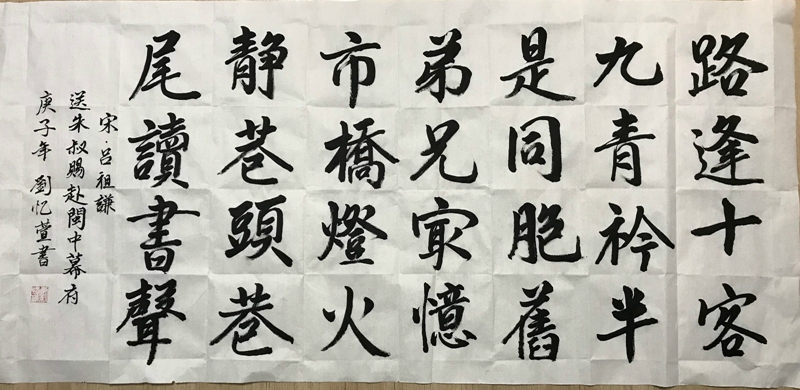 路逢十客
九青衿半
是同胞舊
弟兄㝡憶
市橋燈火
静巷頭巷
尾讀書聲
宋·吕祖謙
送朱叔賜赴閩中幕府
庚子年 劉忆萱書